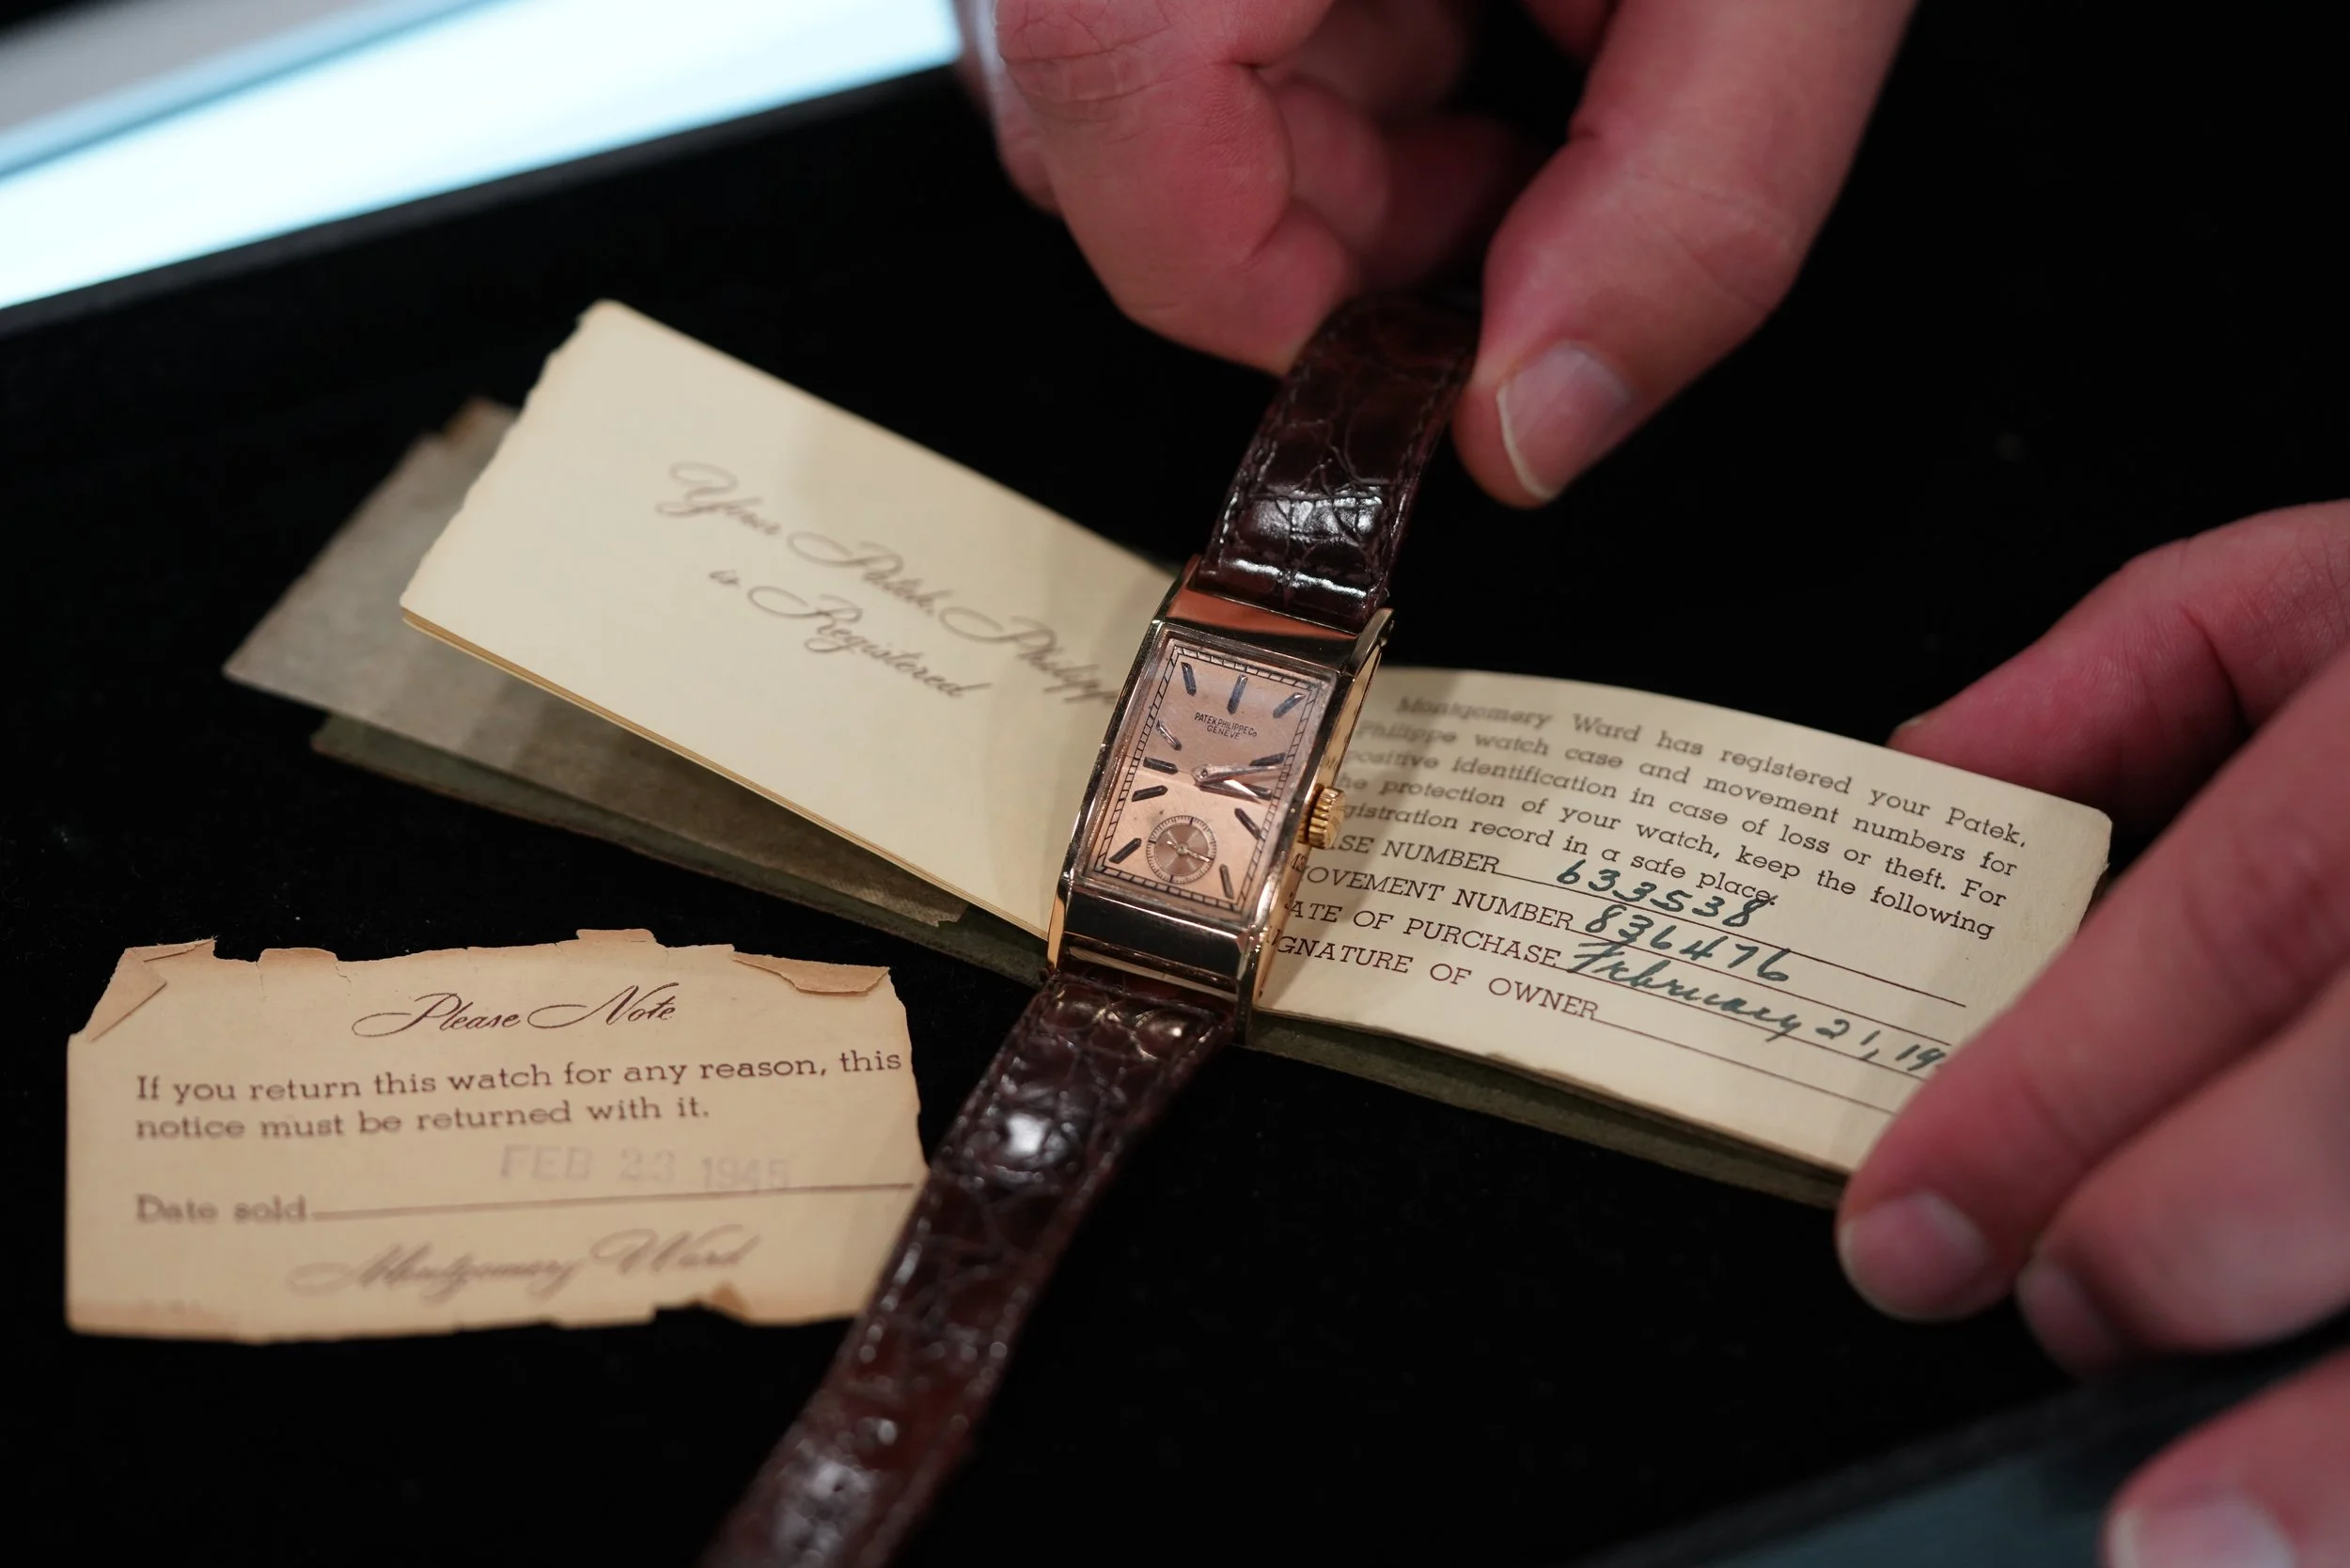 Your Patek, Philippe
is Registered
PATEK PHILIPPE & Co
GENÈVE
Montgomery Ward has registered your Patek,
Philippe watch case and movement numbers for
positive identification in case of loss or theft. For
the protection of your watch, keep the following
registration record in a safe place.
CASE NUMBER 633538
MOVEMENT NUMBER 836476
DATE OF PURCHASE February 21, 19
SIGNATURE OF OWNER
Please Note
If you return this watch for any reason, this
notice must be returned with it.
FEB 23 1945
Date sold
Montgomery Ward